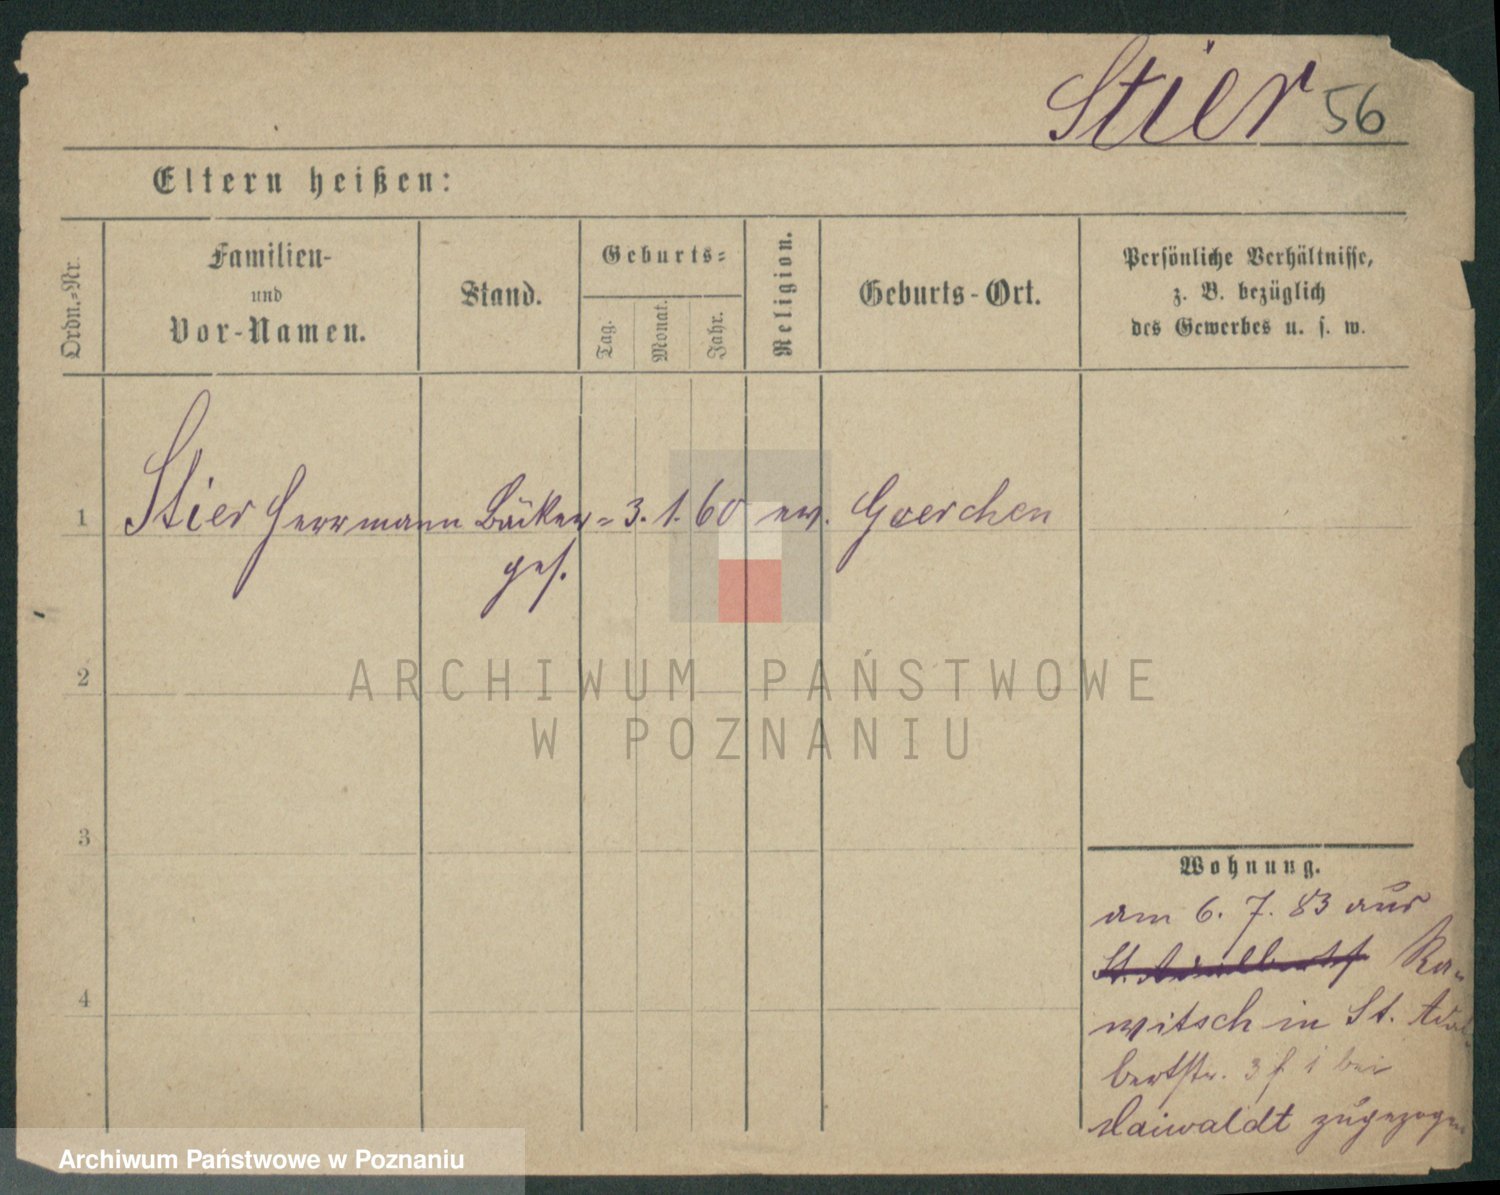 Stier 56
Eltern heißen:
Ordn.=Nr.
Familien-
und
Vor-Namen.
Stand.
Geburts=
Tag.
Monat.
Jahr.
Religion.
Geburts-Ort.
Persönliche Verhältnisse,
z. B. bezüglich
des Gewerbes u. s. w.
1 Stier Herrmann Bäcker= 3. 1. 60 ev. Goerchen
ges.
2
ARCHIWUM PAŃSTWOWE
W POZNANIU
3
Wohnung.
am 6. 7. 83 aus
St. Adalbertst Ra-
4
witsch in St. Adal
bertstr. 3 f 1 bei
Maiwaldt zugezogen
Archiwum Państwowe w Poznaniu